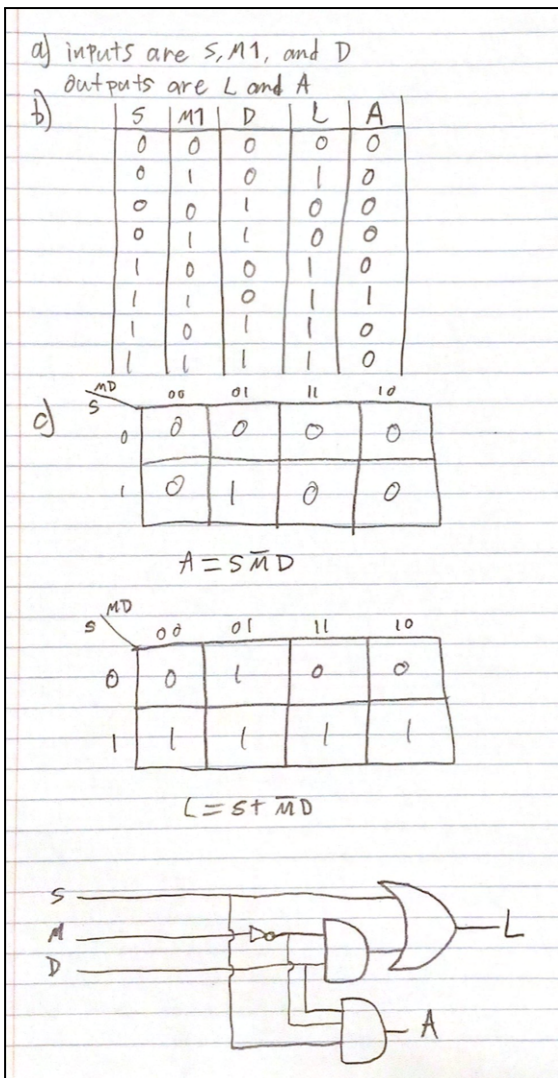 a) inputs are S, M1, and D
outputs are L and A
b) S M1 D L A
0 0 0 0 0
0 1 0 1 0
0 0 1 0 0
0 1 1 0 0
1 0 0 1 0
1 1 0 1 1
1 0 1 1 0
1 1 1 1 0
MD 00 01 11 10
c) S
0 0 0 0 0
1 0 1 0 0
A = S M̅ D
MD
S 00 01 11 10
0 0 1 0 0
1 1 1 1 1
L = S + M̅ D
S
M
D
L
A